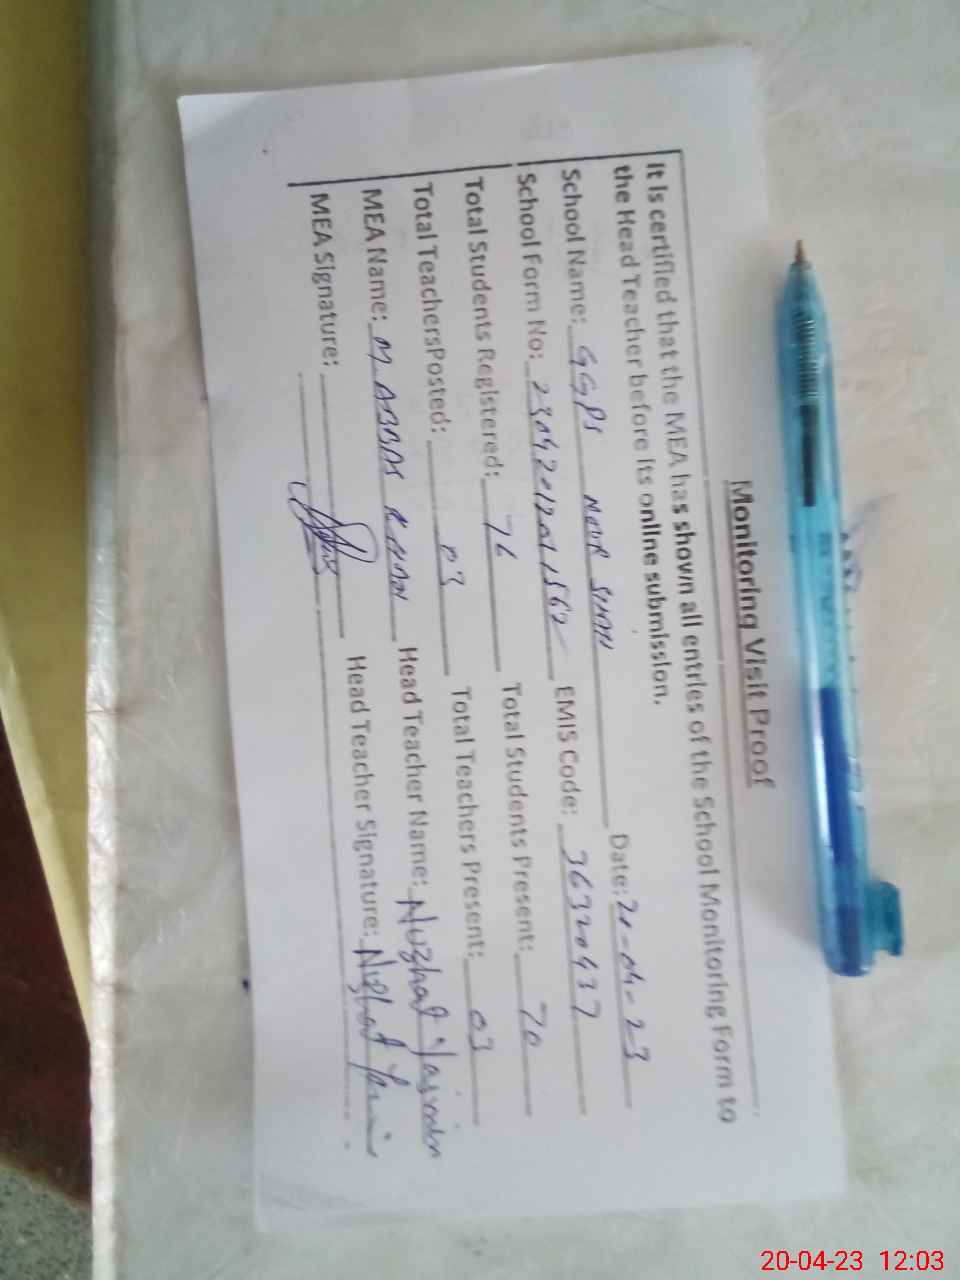 Monitoring Visit Proof
It is certified that the MEA has shown all entries of the School Monitoring Form to
the Head Teacher before its online submission.
School Name: GGPS NOOR SHAH Date: 20-04-23
School Form No: EMIS Code: 36320437
Total Students Registered: 76 Total Students Present: 70
Total TeachersPosted: 03 Total Teachers Present: 03
MEA Name: M ABBAS KHAN Head Teacher Name: Nuzhat Yasmin
MEA Signature: Head Teacher Signature: Nuzhat
20-04-23 12:03